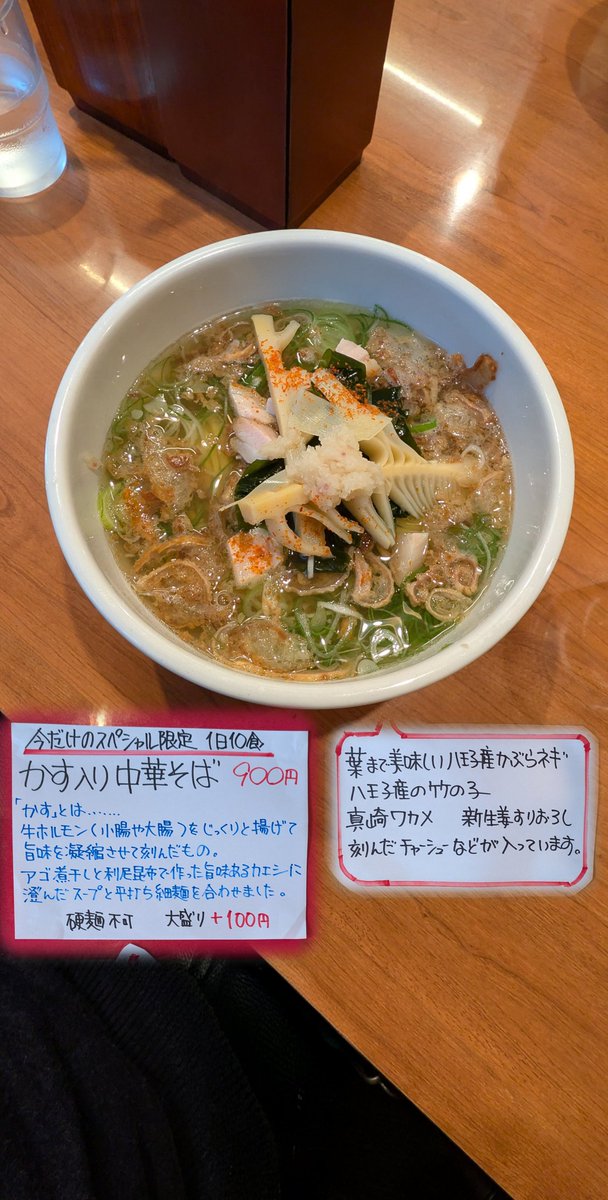 今だけのスペシャル限定 1日10食
かす入り 中華そば 900円
「かす」とは……
牛ホルモン(小腸や大腸)をじっくりと揚げて
旨味を凝縮させて刻んだもの。
アゴ煮干しと利尻昆布で作った旨味あるカエシに
澄んだスープと平打ち細麺を合わせました。
硬麺不可 大盛り+100円
葉まで美味しい八王子産かぶらネギ
八王子産の竹の子
真崎ワカメ 新生姜すりおろし
刻んだチャーシューなどが入っています。